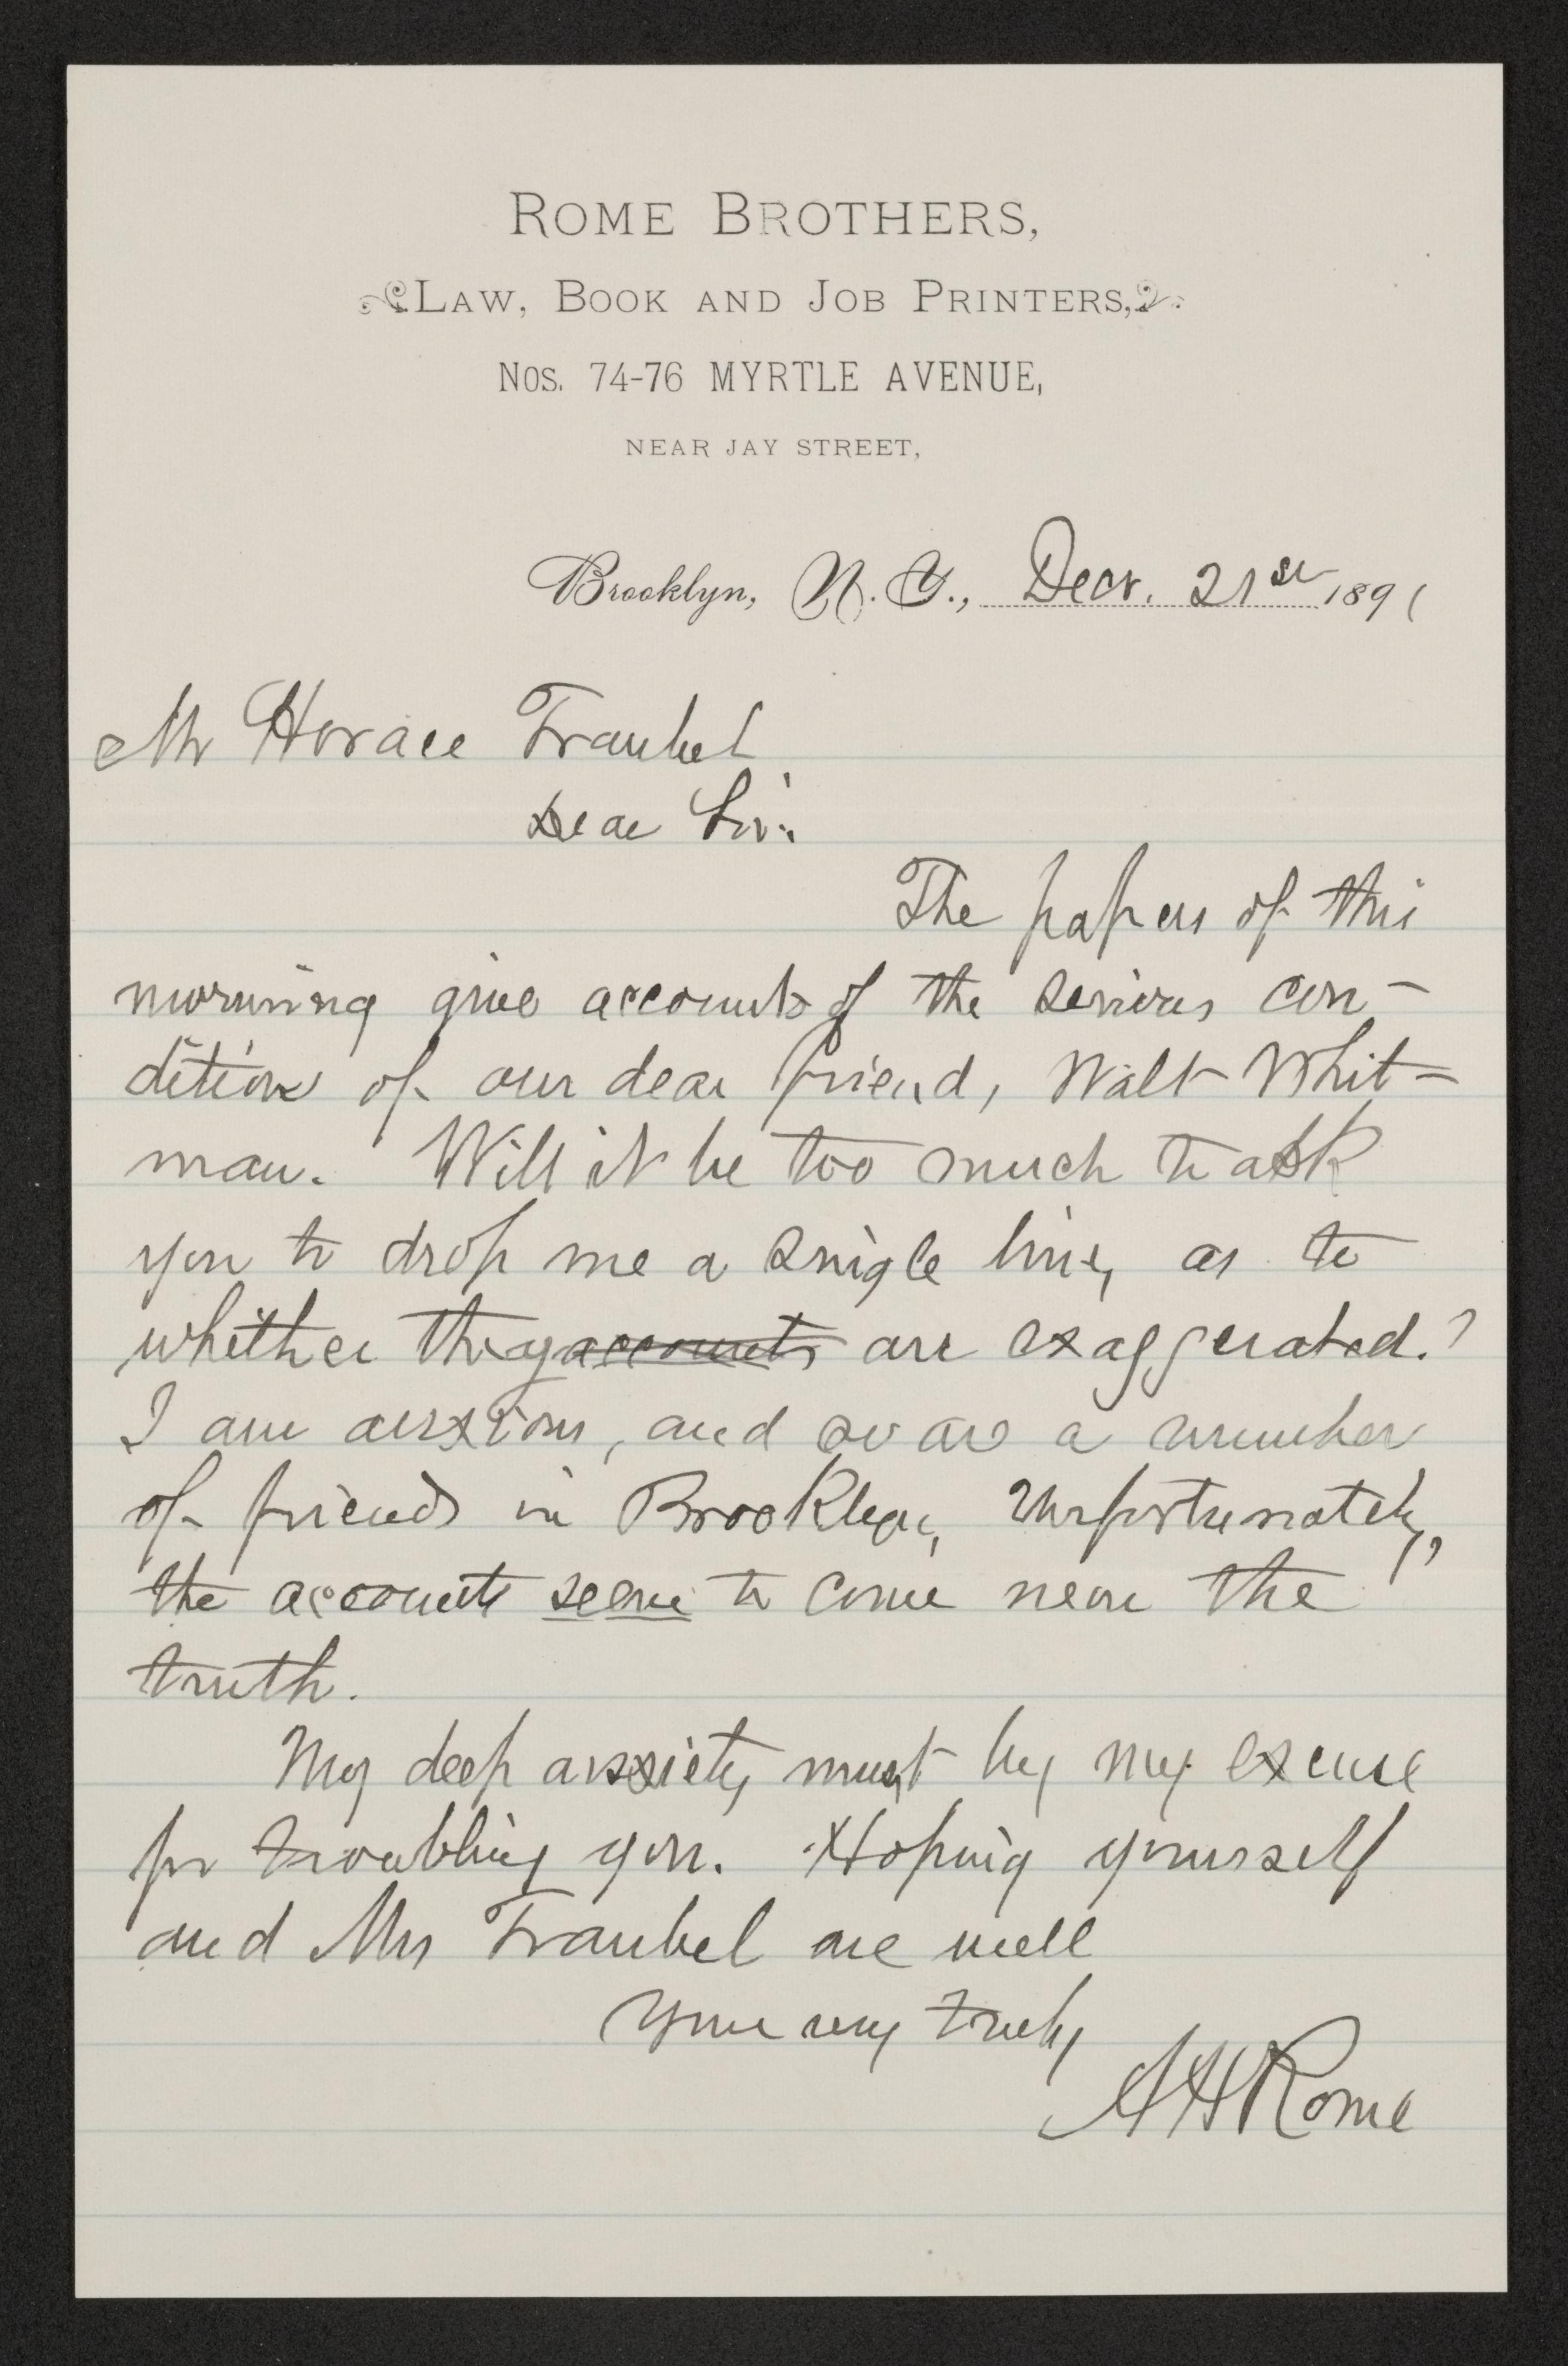 ROME BROTHERS,
LAW, BOOK AND JOB PRINTERS,
Nos. 74-76 MYRTLE AVENUE,
NEAR JAY STREET,
Brooklyn, N. Y., Decr. 21st 1891
Mr Horace Traubel
Dear Sir:
The papers of this
morning give accounts of the serious con-
dition of our dear friend, Walt Whit=
man. Will it be too much to ask
you to drop me a single line, as to
whether they accounts are exaggerated.?
I am anxious, and so are a number
of friends in Brooklyn, Unfortunately,
the accounts seem to come near the
truth.
My deep anxiety must be my excuse
for troubling you. Hoping yourself
and Mrs Traubel are well
Yours very truly
A H Rome